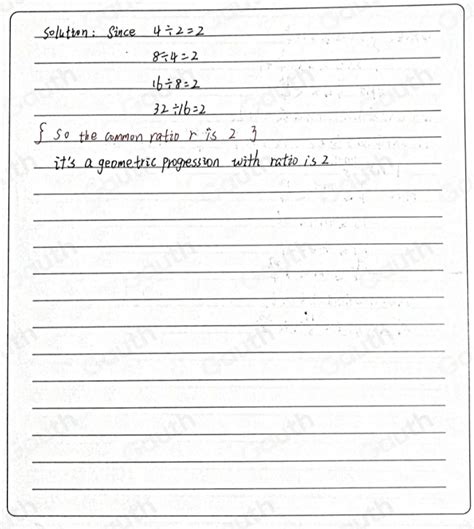 Solution: Since 4÷2=2
8÷4=2
16÷8=2
32÷16=2
{ So the common ratio r is 2 }
it's a geometric progression with ratio is 2